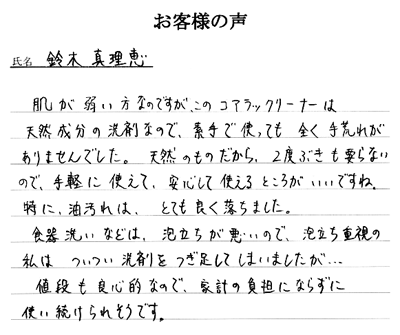 お客様の声
氏名 鈴木 真理恵
肌が弱い方なのですが、このコアラックリーナーは
天然成分の洗剤なので、素手で使っても全く手荒れが
ありませんでした。天然のものだから、2度ぶきも要らない
ので、手軽に使えて、安心して使えるところがいいですね。
特に、油汚れは、とても良く落ちました。
食器洗いなどは、泡立ちが悪いので、泡立ち重視の
私はついつい洗剤をつぎ足してしまいましたが…
値段も良心的なので、家計の負担にならずに
使い続けられそうです。